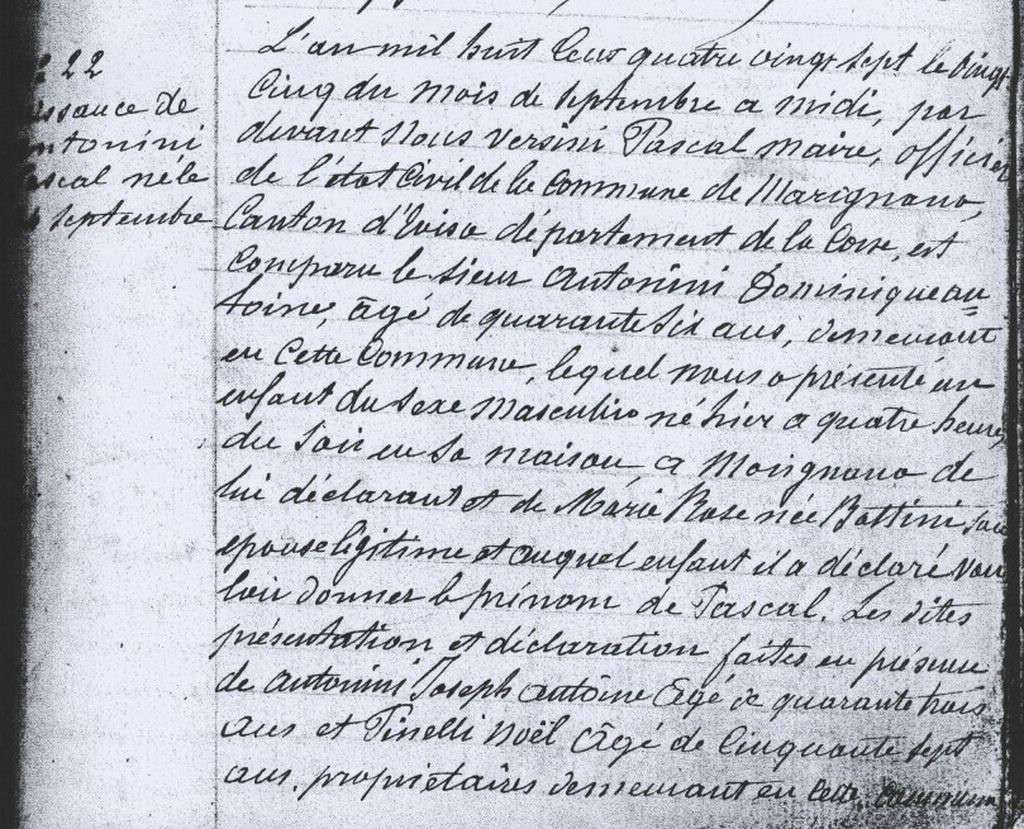 22
ssance de
ntonini
scal né le
septembre
L'an mil huit cens quatre vingt sept le vingt
cinq du mois de septembre a midi, par
devant nous Versini Pascal maire, officier
de l'état civil de la commune de Marignana,
Canton d'Evisa département de la Corse, est
comparu le sieur Antonini Dominique an
toine, âgé de quarante six ans, demeurant
en cette commune, lequel nous a présenté un
enfant du sexe masculin né hier a quatre heures
du soir en sa maison a Marignana de
lui déclarant et de Marie Rose née Battini, son
epouse légitime et auquel enfant il a déclaré vou
loir donner le prénom de Pascal. Les dites
présentation et déclaration faites en présence
de antonini Joseph antoine âgé de quarante trois
ans et Pinelli Noël âgé de cinquante sept
ans, propriétaires demeurant en cette commune